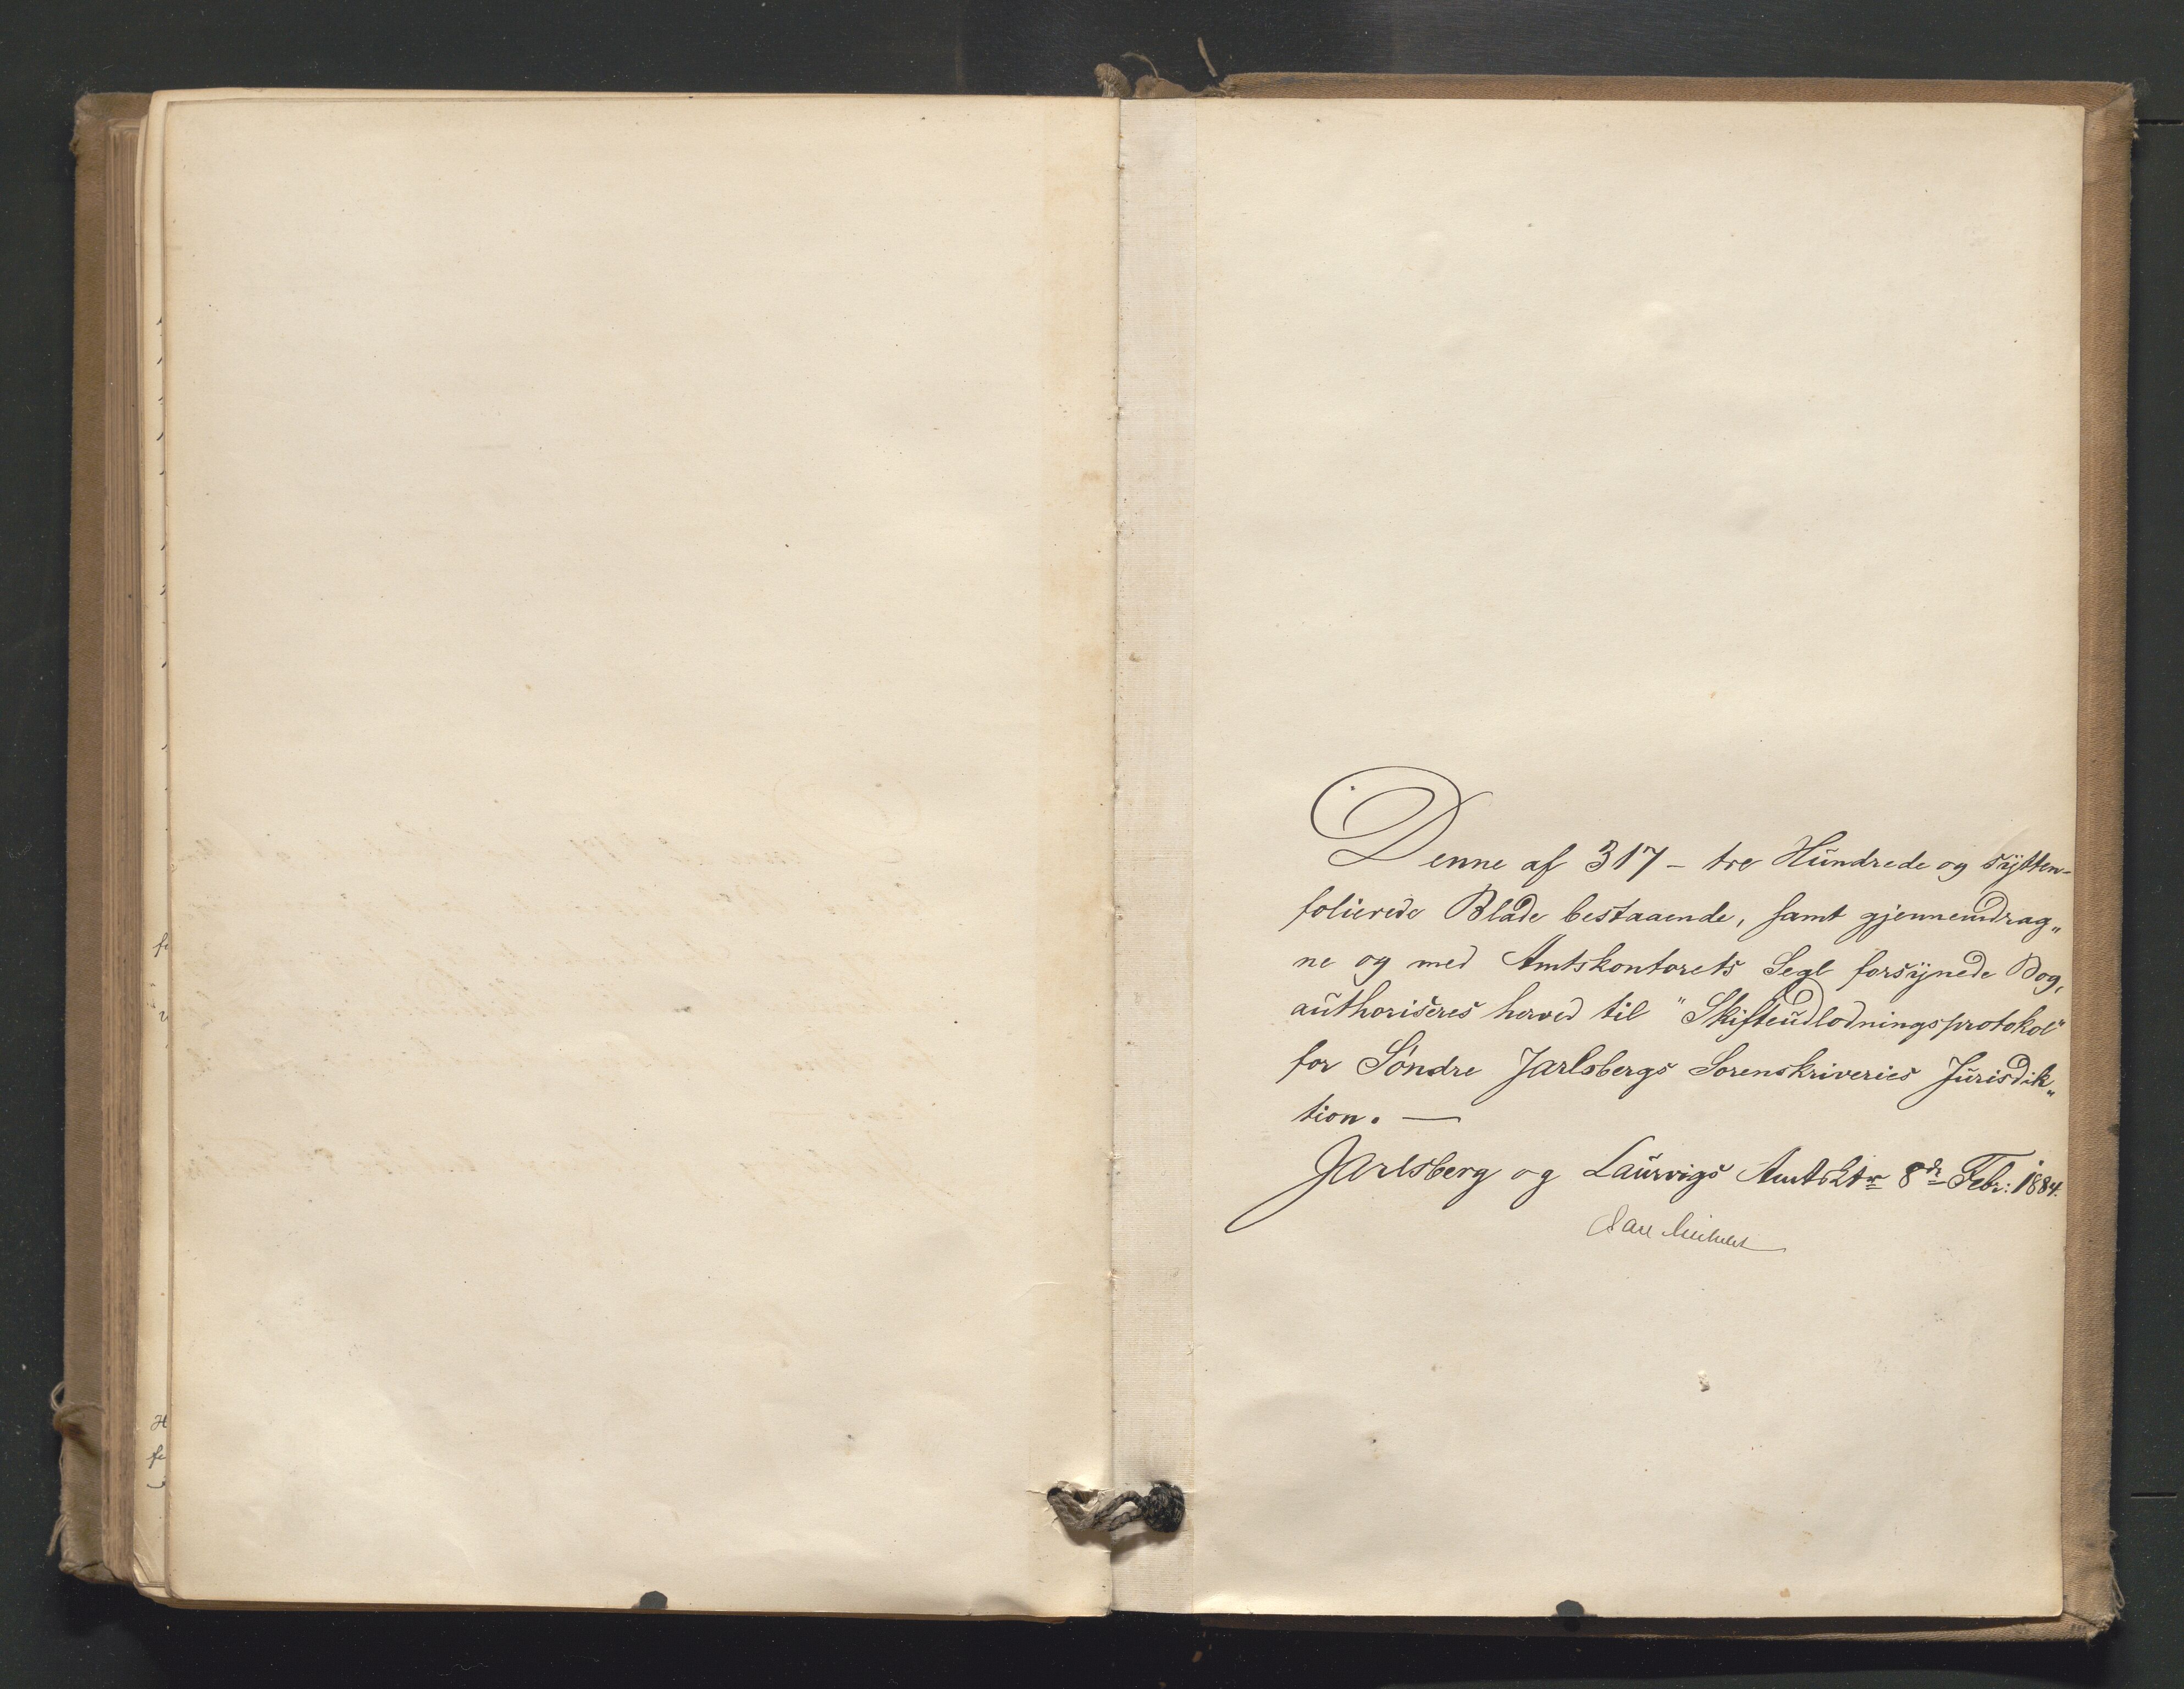 Denne af 317 - tre Hundrede og sytten-
folierede Blade bestaaende, samt gjennemdrag„
ne og med Amtskontorets Segl forsynede Bog,
authoriseres herved til "Skifteudlodningsprotokol"
for Søndre Jarlsbergs Sorenskriveries Jurisdik„
tion. —
Jarlsberg og Laurvigs Amtsktr 8de Febr: 1884.